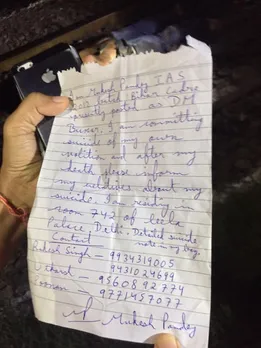 I am Mukesh Pandey IAS
2012 batch Bihar cadre
currently posted as DM
Buxar. I am committing
suicide of my own
volition and after my
death please inform
my relatives about my
suicide. I am residing in
room 742 of Leela
Palace Delhi. Detailed suicide
note in my bag.
Contact
Rakesh Singh - 9934319005
9431024699
- 9560892774
- 9771457077
Mukesh Pandey